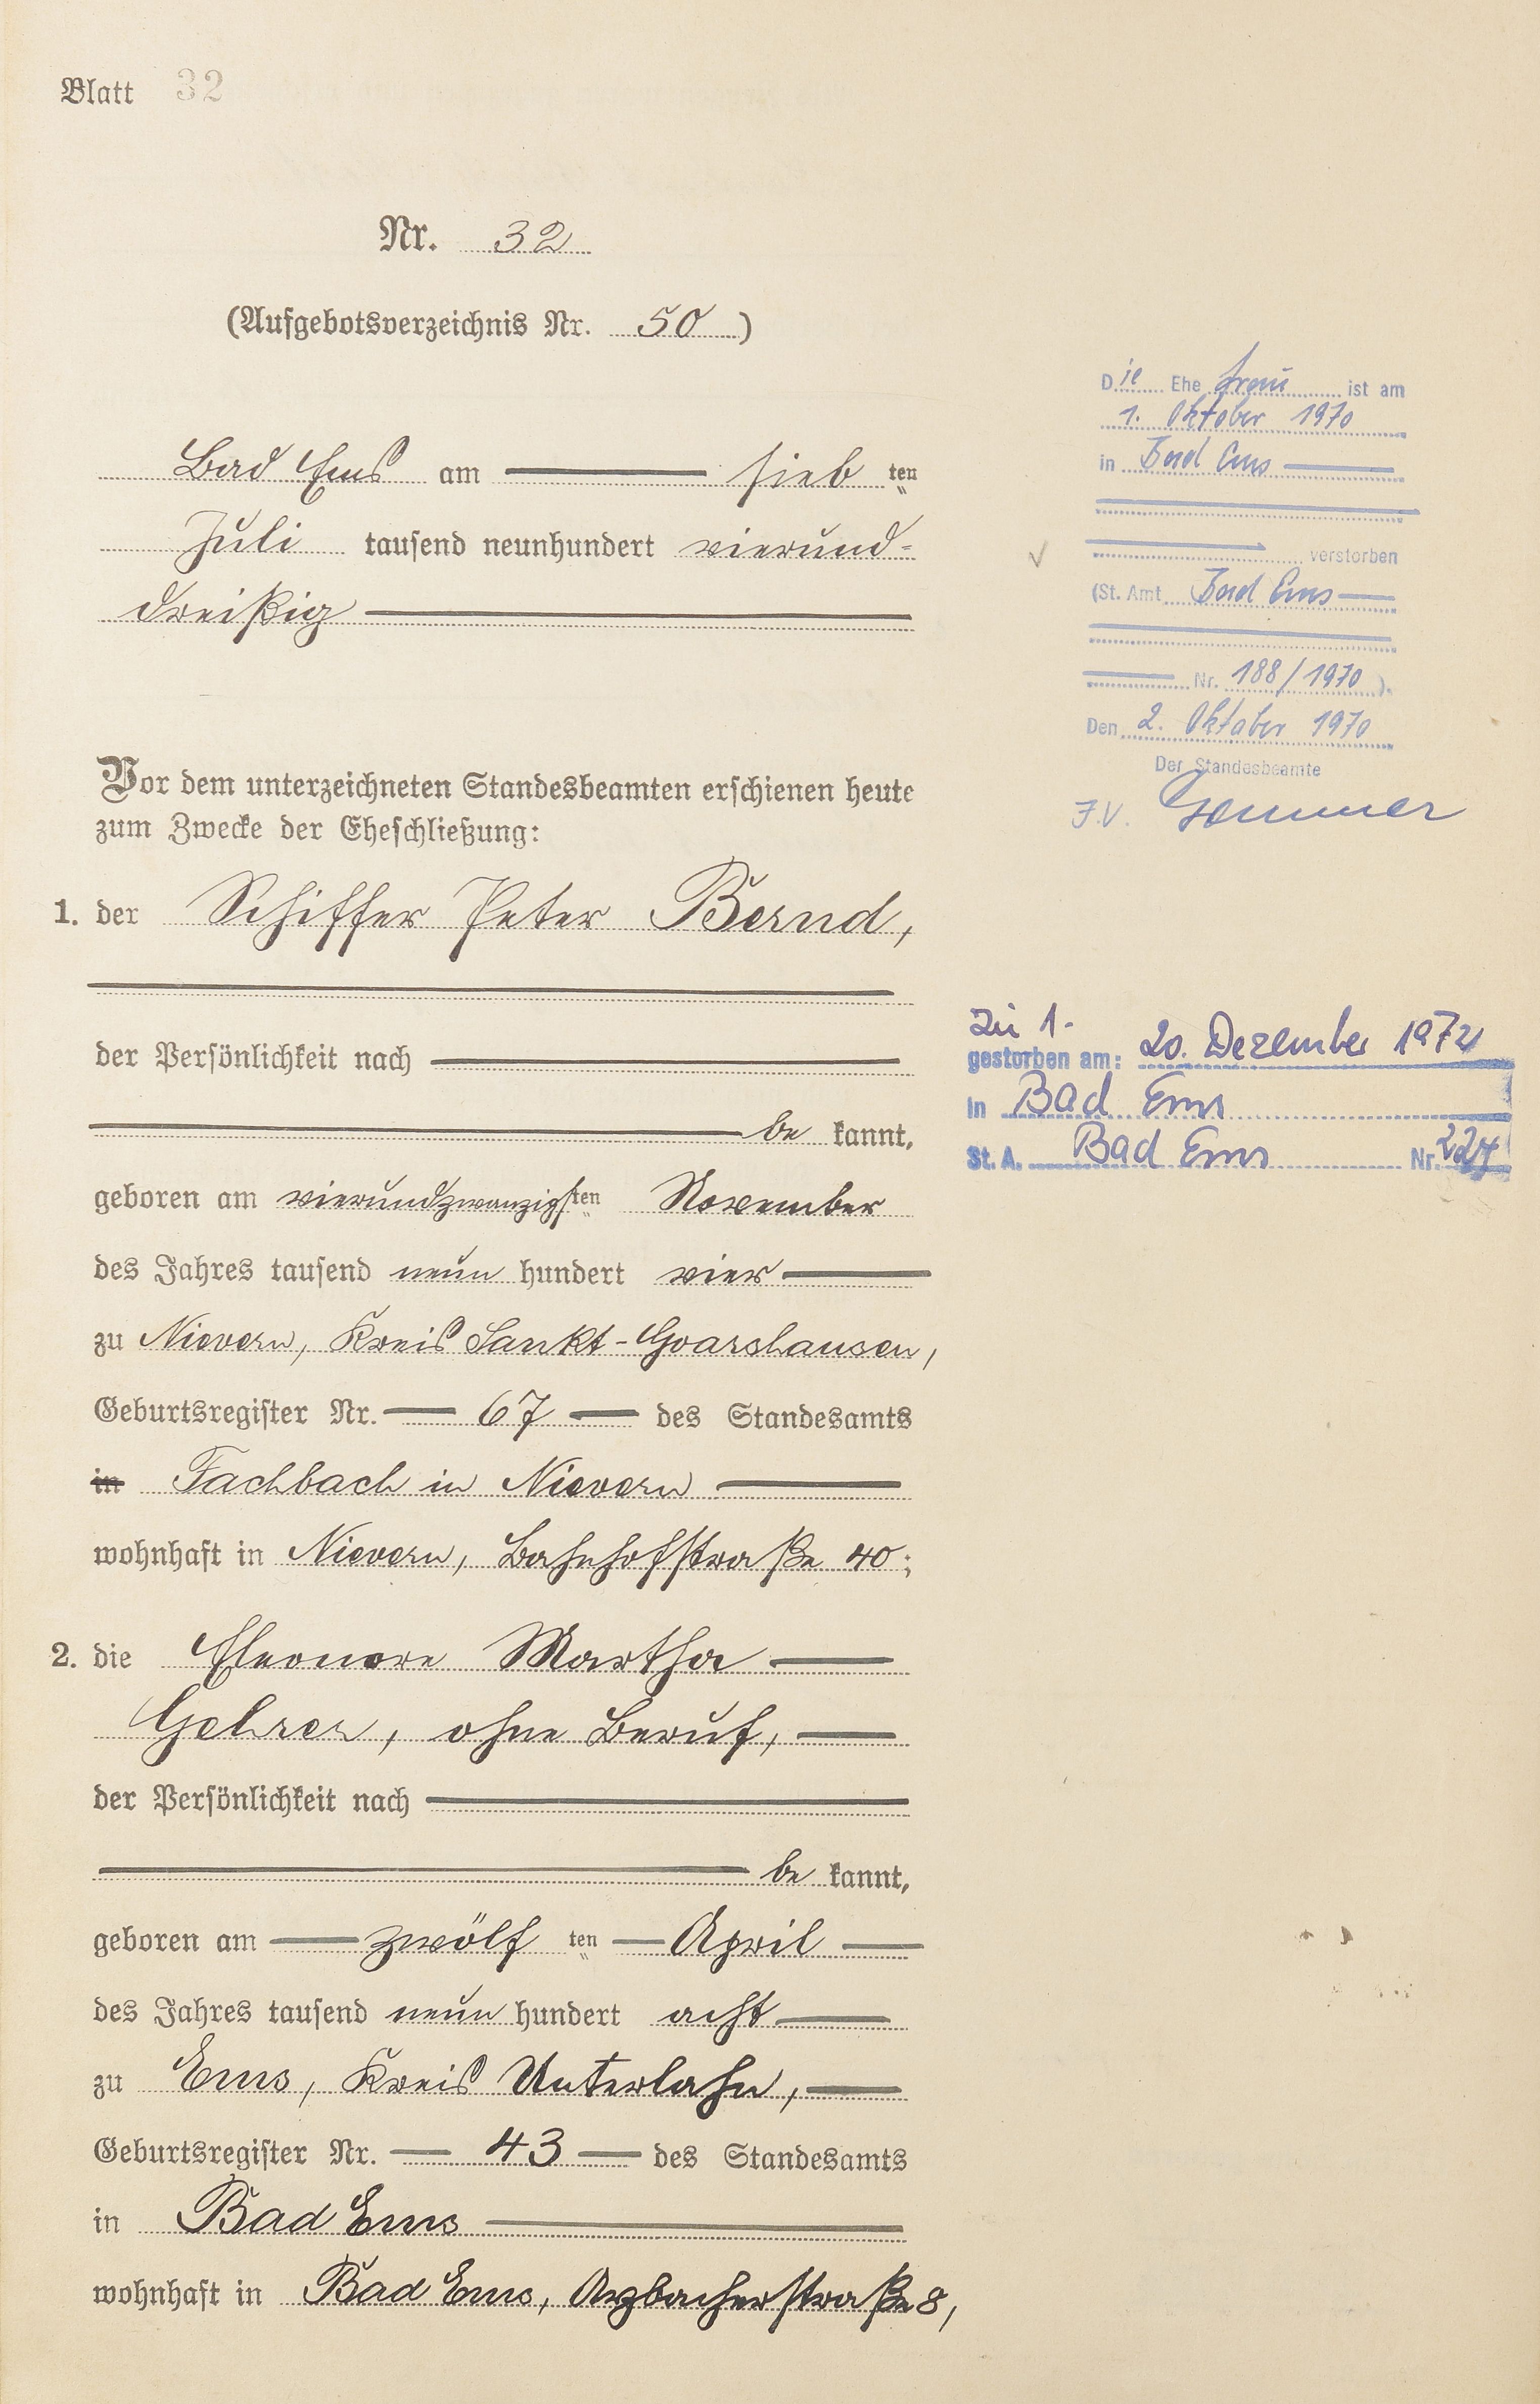 Blatt 32
Nr. 32
(Aufgebotsverzeichnis Nr. 50)
Bad Ems am sieb ten
Juli tausend neunhundert vierund-
dreißig
Vor dem unterzeichneten Standesbeamten erschienen heute
zum Zwecke der Eheschließung:
1. der Schiffer Peter Bernd,
der Persönlichkeit nach
be kannt,
geboren am vierundzwanzigsten November
des Jahres tausend neun hundert vier
zu Nievern, Kreis Sankt-Goarshausen,
Geburtsregister Nr. 67 des Standesamts
in Fachbach in Nievern
wohnhaft in Nievern, Bahnhofstraße 40;
2. die Eleonore Martha
Gehrer, ohne Beruf,
der Persönlichkeit nach
be kannt,
geboren am zwölf ten April
des Jahres tausend neun hundert acht
zu Ems, Kreis Unterlahn,
Geburtsregister Nr. 43 des Standesamts
in Bad Ems
wohnhaft in Bad Ems, Arzbacherstraße 8,
Die Ehe frau ist am
1. Oktober 1970
in Bad Ems
verstorben
(St. Amt Bad Ems
Nr. 188/1970).
Den 2. Oktober 1970
Der Standesbeamte
J.V.
Zu 1.
gestorben am: 20. Dezember 1972
in Bad Ems
St. A. Bad Ems Nr.